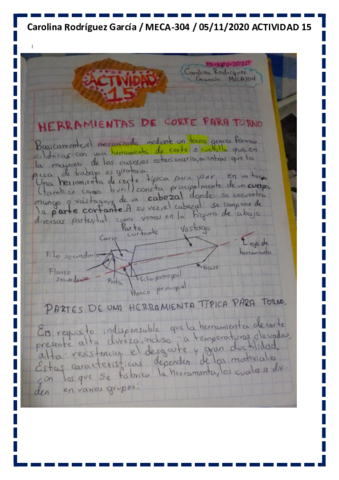 Carolina Rodríguez García / MECA-304 / 05/11/2020 ACTIVIDAD 15
ACTIVIDAD
15
Carolina Rodríguez
HERRAMIENTAS DE CORTE PARA TORNO
Basicamente, el mecanizado mediante un torno genera formas
cilíndricas con una herramienta de corte o cuchilla que en
la mayoría de los casos es estacionaria, mientras que la
pieza de trabajo es giratoria.
Una herramienta de corte típica para usar en un torno
consta principalmente de un cuerpo,
mango o vástago y de un cabezal donde se encuentra
la parte cortante. A su vez, el cabezal se compone de
diversas partes, tal como vemos en la figura de abajo
Parte
cortante
Vástago
Cara
Eje de
herramienta
Filo secundario
Flanco
secundario
Punta
Filo principal
Base
Flanco principal
PARTES DE UNA HERRAMIENTA TÍPICA PARA TORNO.
Es requisito indispensable que la herramienta de corte
presente alta dureza, incluso a temperaturas elevadas,
alta resistencia al desgaste y gran ductilidad.
Estas características dependen de los materiales
con los que se fabrica la herramienta, los cuales se divi-
den en varios grupos: